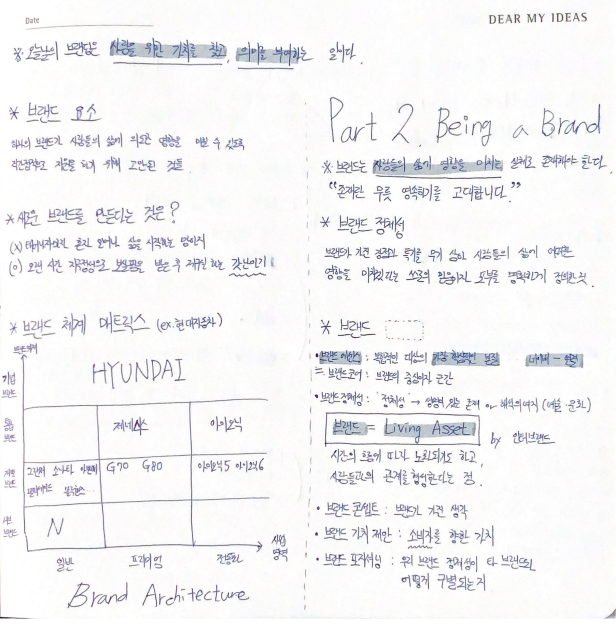 Date
DEAR MY IDEAS
※ 오늘날의 브랜딩은 사람을 위한 가치를 찾고, 의미를 부여하는 일이다.
* 브랜드 요소
우리의 브랜드가 사람들의 삶에 의도한 영향을 미칠 수 있도록
직간접적으로 지원을 하기 위해 고안된 것들.
* 새로운 브랜드를 만든다는 것은?
(x) 태어나자마자 혼자 일어나 삶을 시작하는 망아지
(o) 오랜 시간 지속적으로 보살핌을 받은 후 제구실 하는 갓난아기!
* 브랜드 체계 매트릭스 (ex. 현대자동차)
브랜드체계
HYUNDAI
기업 브랜드
제네시스 아이오닉
브랜드
개별 브랜드
그랜저 쏘나타 아반떼
G70 G80
아이오닉5 아이오닉6
브랜드
N
일반 프리미엄 전동화
사업 영역
Brand Architecture
Part 2. Being a Brand
※ 브랜드는 사람들의 삶에 영향을 미치는 실체로 존재해야 한다.
"존재란 무릇 영속하기를 고대합니다."
* 브랜드 정체성
브랜드가 가진 강점과 특기를 무기 삼아 사람들의 삶에 어떠한
영향을 미치겠다는 스스로의 믿음이자 포부를 명확하게 정의한 것.
* 브랜드
• 브랜드 에센스 : 본질적인 대상의 가장 핵심적인 본질
= 브랜드코어 : 브랜드의 중심이자 근간
• 브랜드정체성 : 정체성 → 생명력 있는 존재 or 해석의 여지 (예술, 문화)
브랜드 = Living Asset by 인터브랜드
시간의 흐름에 따라 노화되기도 하고,
사람들과의 관계를 형성한다는 점.
• 브랜드 콘셉트 : 브랜드가 가진 생각
• 브랜드 가치 제안 : 소비자를 향한 가치
• 브랜드 포지셔닝 : 우리 브랜드 정체성이 타 브랜드와
어떻게 구별되는지